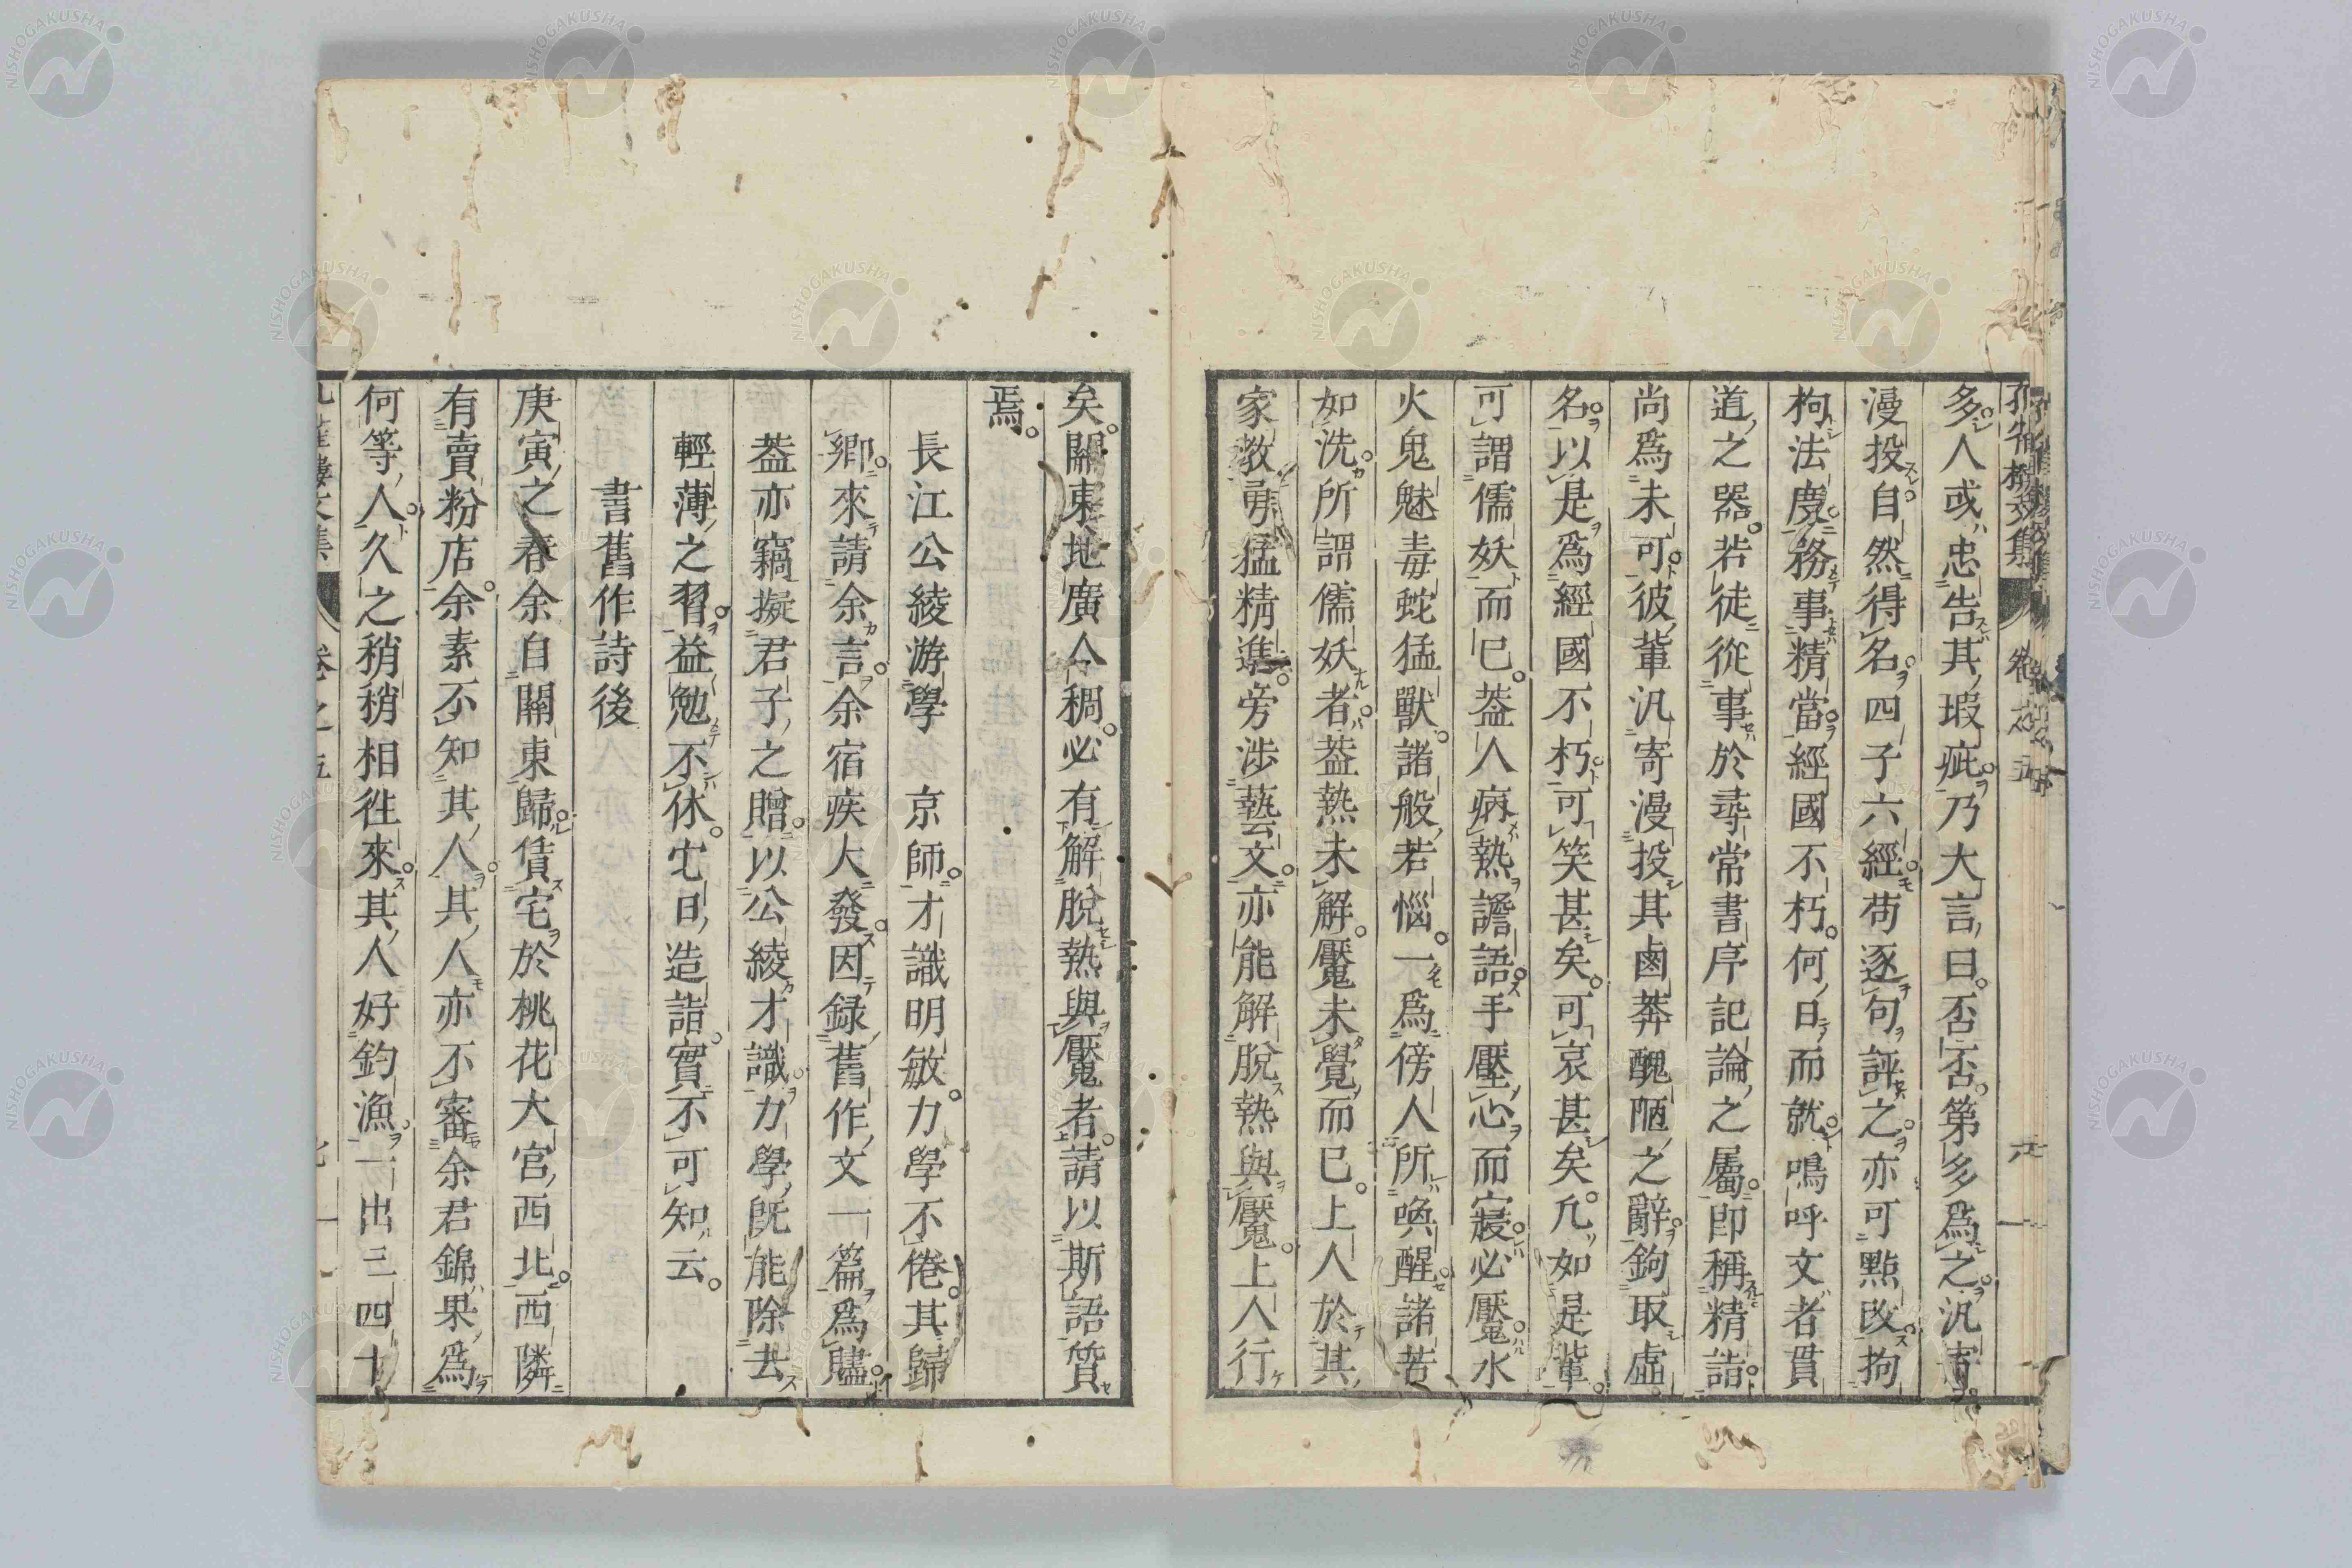 多人或忠告其瑕疵乃大言曰否否第多爲之汎寄
漫投自然得名四子六經苟逐句評之亦可點改拘
拘法度務事精當經國不朽何日而就嗚呼文者貫
道之器若徒從事於尋常書序記論之屬卽稱精詣
尚爲未可彼輩汎寄漫投其鹵莽醜陋之辭鉤取虛
名以是爲經國不朽可笑甚矣可哀甚矣凡如是輩
可謂儒妖而已葢人病熱譫語手壓心而寢必魘水
火鬼魅毒蛇猛獸諸般若惱一爲傍人所喚醒諸若
如洗所謂儒妖者葢熱未解魘未覺而已上人於其
家敎勇猛精進旁涉藝文亦能解脫熱與魘上人行
矣關東地廣人稠必有解脫熱與魘者請以斯語質
焉
長江公綾游學京師才識明敏力學不倦其歸
鄉來請余言余宿疾大發因錄舊作文一篇爲贐
葢亦竊擬君子之贈以公綾才識力學旣能除去
輕薄之習益勉不休它日造詣實不可知云
書舊作詩後
庚寅之春余自關東歸僦宅於桃花大宮西北西隣
有賣粉店余素不知其人其人亦不審余君錦果爲
何等人久之稍稍相徃來其人好釣漁一出三四十
卷之五
NISHOGAKUSHA